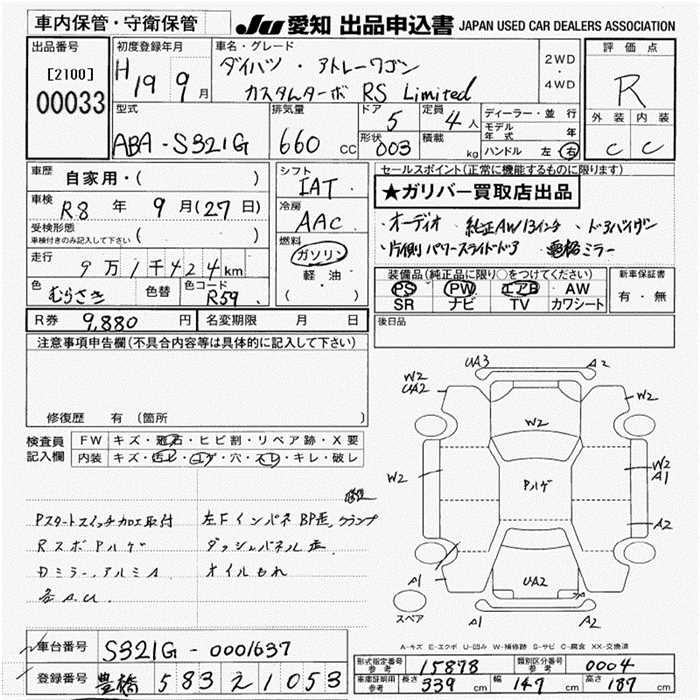 車内保管・守衛保管
JU 愛知 出品申込書 JAPAN USED CAR DEALERS ASSOCIATION
出品番号
[2100]
00033
初度登録年月
H 19 9月
車名・グレード
ダイハツ・アトレーワゴン
カスタムターボ RS Limited
2WD
・
4WD
評価点
R
外装 内装
C C
型式
ABA-S321G
排気量
660 cc
ドア
5
定員
4人
形状
003
積載
kg
ディーラー・並行
モデル年式 年
ハンドル 左 右
車歴
自家用・( )
車検
R8年 9月(27日)
受検形態
車検付きのみ記入して下さい ( )
走行
9万1千424km
色
むらさき
色替
色コード
R59
シフト
IAT
冷房
AAC
燃料
ガソリン
軽・油
( )
セールスポイント(正常に機能するものに限ります)
★ガリバー買取店出品
・オーディオ ・純正AW13インチ ・ドアバイザー
・片側パワースライドドア ・電格ミラー
装備品(純正品に限り○をつけてください)
PS PW エアB AW
SR ナビ TV カワシート
新車保証書
有・無
R券 9,880円
名変期限 月 日
後日品
注意事項申告欄(不具合内容等は具体的に記入して下さい)
修復歴 有(箇所 )
検査員
記入欄
FW キズ・飛石・ヒビ割・リペア跡・X要
内装 キズ・汚レ・コゲ・穴・スレ・キレ・破レ
Pスタートスイッチ加工取付
RスポPハゲ
Dミラー、アルミA
各A.U
左FインパネBP歪、クランプ
ダッシュパネル歪
オイルもれ
UA3
A2
W2
UA2
W2
W2
W2
Pハゲ
W2
A1
A2
A1
UA2
A1
A2
スペア
A-キズ E-エクボ U-凹み W-補修跡 S-サビ C-腐食 XX-交換済
車台番号 S321G-0001637
登録番号 豊橋 583 え 1053
形式指定番号 参考 15878
類別区分番号 参考 0004
車庫証明用 参考 長さ 339cm 幅 147cm 高さ 187cm